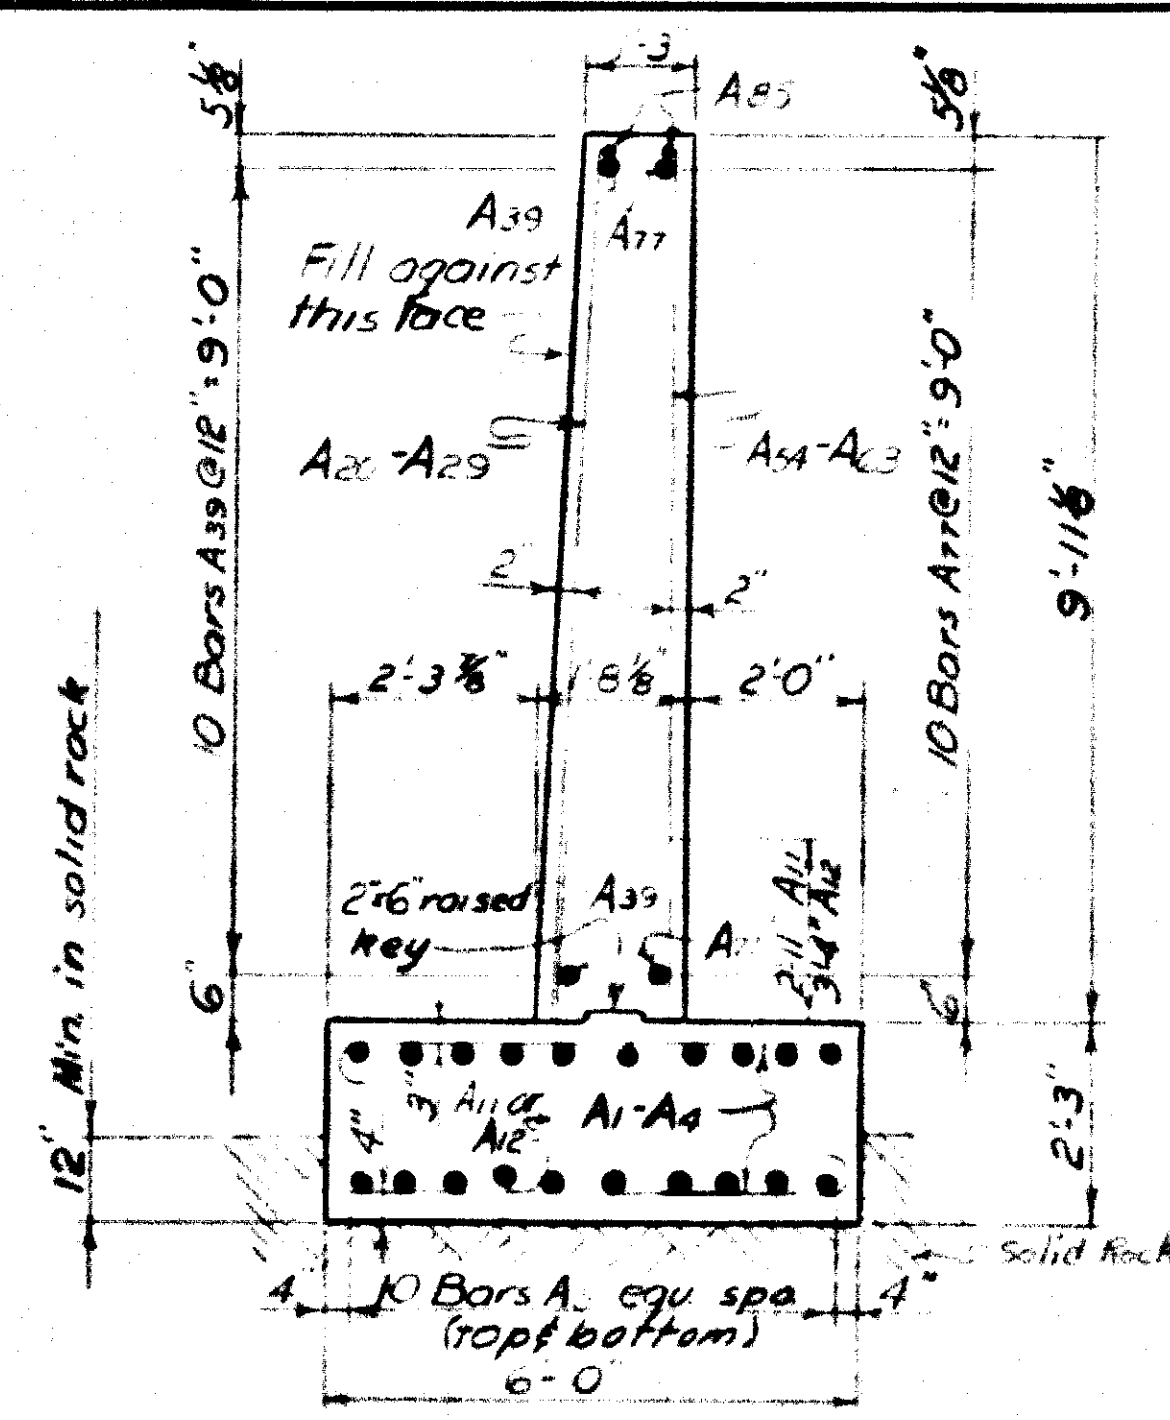 5 1/8"
-3
A85
5 1/8"
A39
A77
Fill against
this face
10 Bars A39@12"=9'-0"
10 Bars A77@12"=9'-0"
-A29
A54-
9'-11 1/8"
2"
2"
2'-3 7/8"
1'-8 1/8"
2'-0"
Min. in solid rock
2"x6" raised
key
A39
2'-11 A11
3'4" A12
6"
6"
12"
3"
4"
A11 or
A12
A1-A4
2'-3"
Solid Rock
4
10 Bars equ. spa.
4"
(top & bottom)
6'-0"